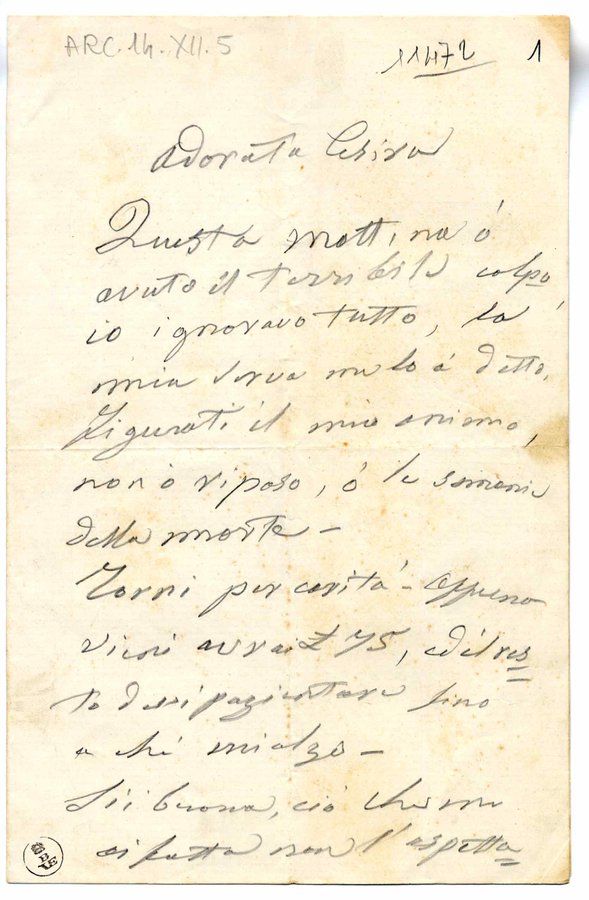 ARC.14.XII.5
11472 1
Adorata Cesira
Questa mattina ó
avuto il terribile colpo
io ignoravo tutto, la
mia serva me lo á detto.
Figurati il mio animo,
non ó riposo, ó le smanie
della morte -
Torni per carità - appena
vieni avrai £ 75, ed il res=
to devi pazientare fino
a ché mi alzo -
Sii buona, ció che mi
ai fatto non l'aspetta=